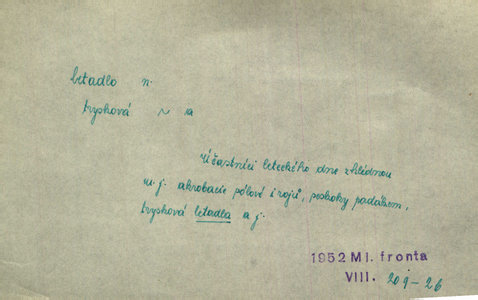 letadlo n.
trysková ~ a
Účastníci leteckého dne zhlédnou
m. j. akrobacie pólové i rojů, seskoky padákem,
trysková letadla a j.
1952 Ml. fronta
VIII. 209-26